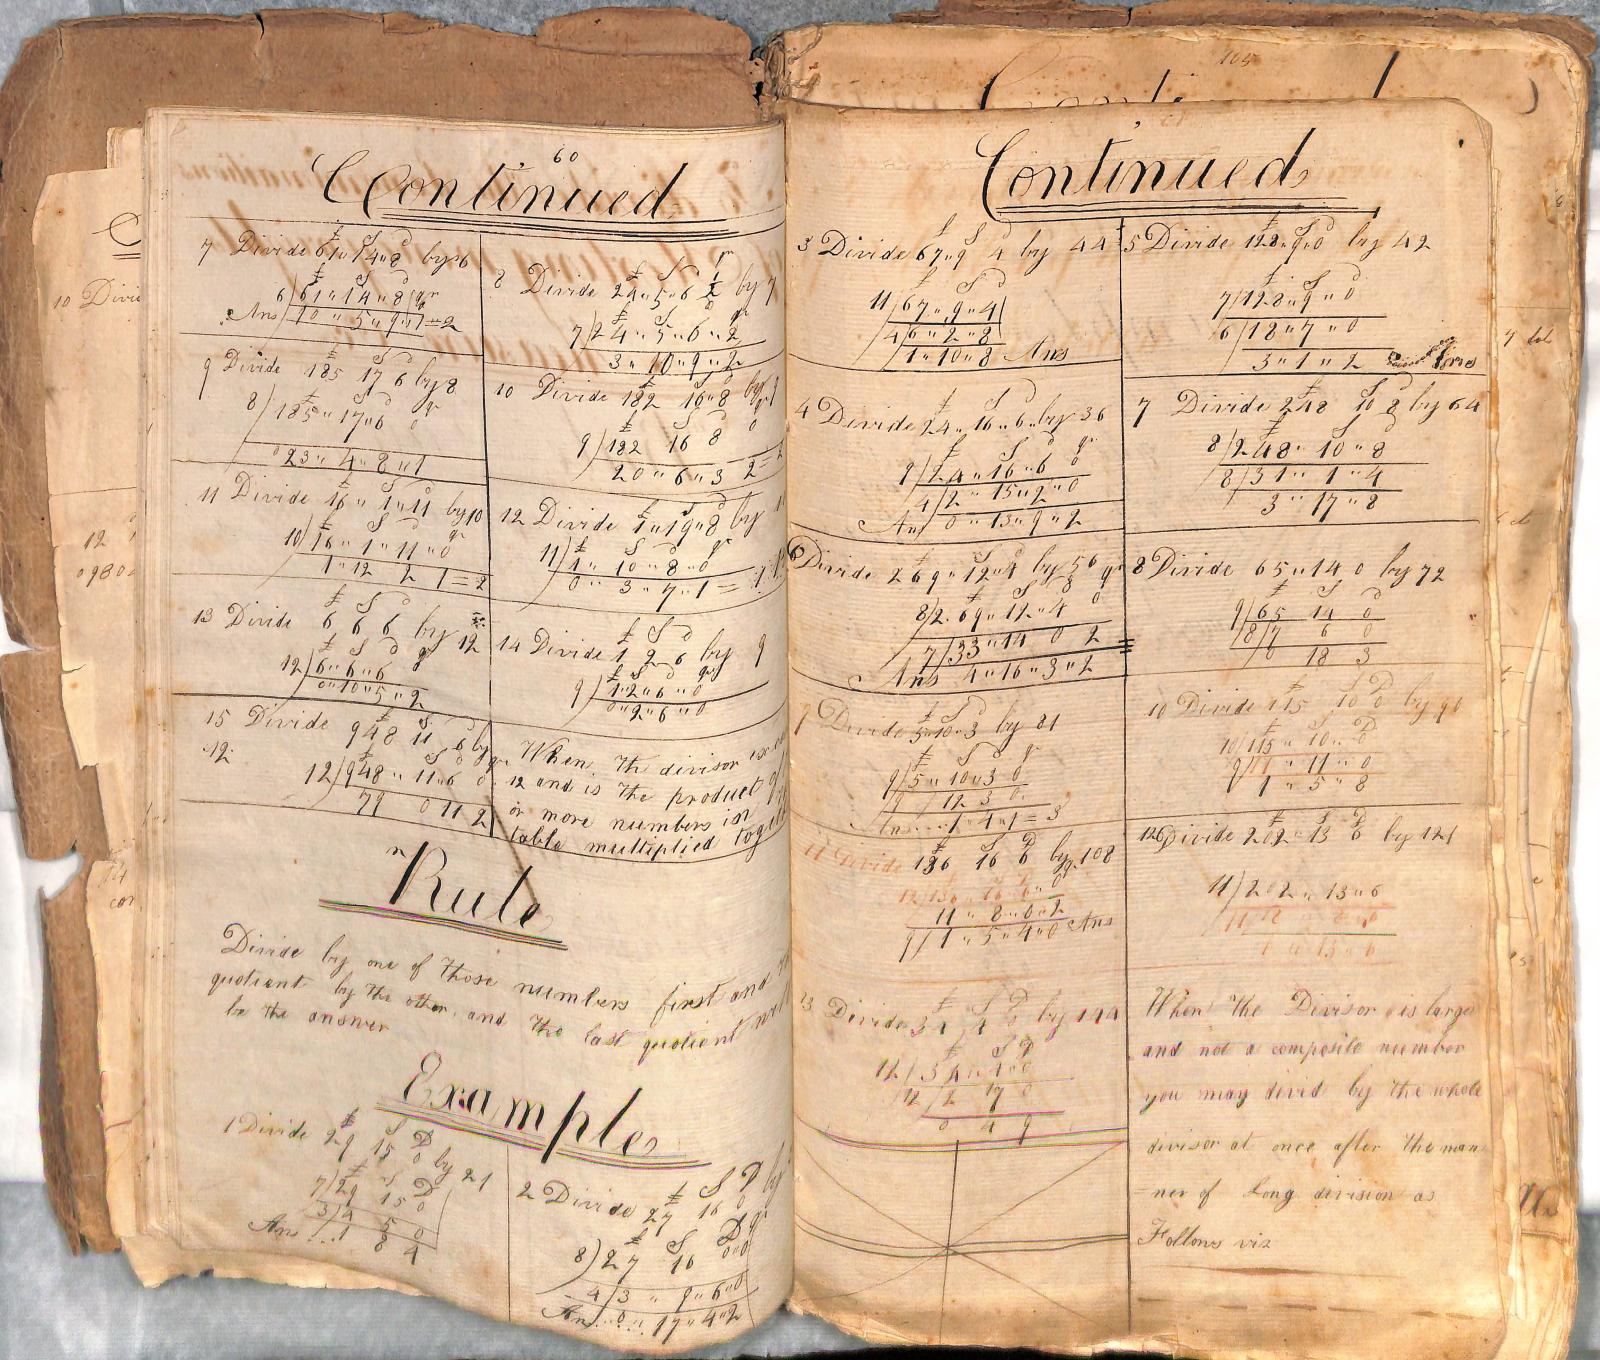 60
Continued
7 Divide 61 " 14 " 8 by 6
£ S d
6/61 " 14 " 8 qr
Ans 10 " 5 " 9 " 1 = 2
8 Divide 24 " 5 " 6 ½ by 7
£ S d qr
7/24 " 5 " 6 " 2
3 " 10 " 9 " 2
9 Divide 185 17 6 by 8
£ S d
8/185 " 17 " 6 0
23 " 4 " 8 " 1
10 Divide 182 16 " 8 by 9
£ S d qr
9/182 16 8 0
20 " 6 " 3 2 =
11 Divide 16 " 1 " 11 by 10
£ S d qr
10/16 " 1 " 11 " 0
1 " 12 2 1 = 2
12 Divide 1 " 19 " 8 by
£ S d qr
11/1 " 10 " 8 " 0
0 " 3 " 7 " 1 =
13 Divide 6 6 6 by 12
£ S d
12/6 " 6 " 6
0 " 10 " 5 " 2
14 Divide 1 2 6 by 9
£ S d qr
9/1 " 2 " 6 " 0
0 " 2 " 6 " 0
15 Divide 948 11 6 by
12
12/948 " 11 " 6 0
79 0 11 2
When the divisor
12 and is the product of
or more numbers in
table multiplied
Rule
Divide by one of those numbers first and
quotient by the other, and the last quotient
be the answer
Examples
1 Divide 29 15 0 by 21
£ S D
7/29 15 0
3/4 5 0
Ans 1 8 4
2 Divide 27 16 0 by
£ S D qr
8/27 16 0 " 0
4/3 " 9 " 6 " 0
Ans 0 " 17 " 4 " 2
105
Continued
3 Divide 67 " 9 4 by 44
£ S d
11/67 " 9 " 4
4/6 " 2 " 8
1 " 10 " 8 Ans
4 Divide 24 " 16 " 6 " by 36
£ S d qr
9/24 " 16 " 6 0
4/2 " 15 " 2 " 0
Ans 0 " 13 " 9 " 2
6 Divide 269 " 12 " 4 by 56
8/269 " 12 " 4 0
7/33 " 14 0 2
Ans 4 " 16 " 3 " 2
9 Divide 5 " 10 " 3 by 81
£ S d qr
9/5 " 10 " 3 0
9/ 12 3 0
Ans 1 " 4 " 1 = 3
11 Divide 136 16 6 by 108
12/136 " 16 6 " 0
11 " 8 " 0 " 2
9/1 " 5 " 4 " 0 Ans
13 Divide 34 4 0 by 144
£ S D
12/34 " 4 " 0
12/2 17 0
0 4 9
5 Divide 128 " 9 " 0 by 42
£ S d
7/128 " 9 " 0
6/18 " 7 " 0
3 " 1 " 2
7 Divide 248 10 8 by 64
£ S d
8/248 " 10 " 8
8/31 " 1 " 4
3 " 17 " 8
8 Divide 65 " 14 0 by 72
£ S d
9/65 14 0
8/7 6 0
0 18 3
10 Divide 115 10 0 by 90
£ S D
10/115 " 10 " 0
9/11 " 11 " 0
1 " 5 " 8
12 Divide 202 " 13 6 by 121
11/202 " 13 " 6
When the Divisor is large
and not a composite number
you may divid by the whole
divisor at once after the man
=ner of Long division as
Follows viz